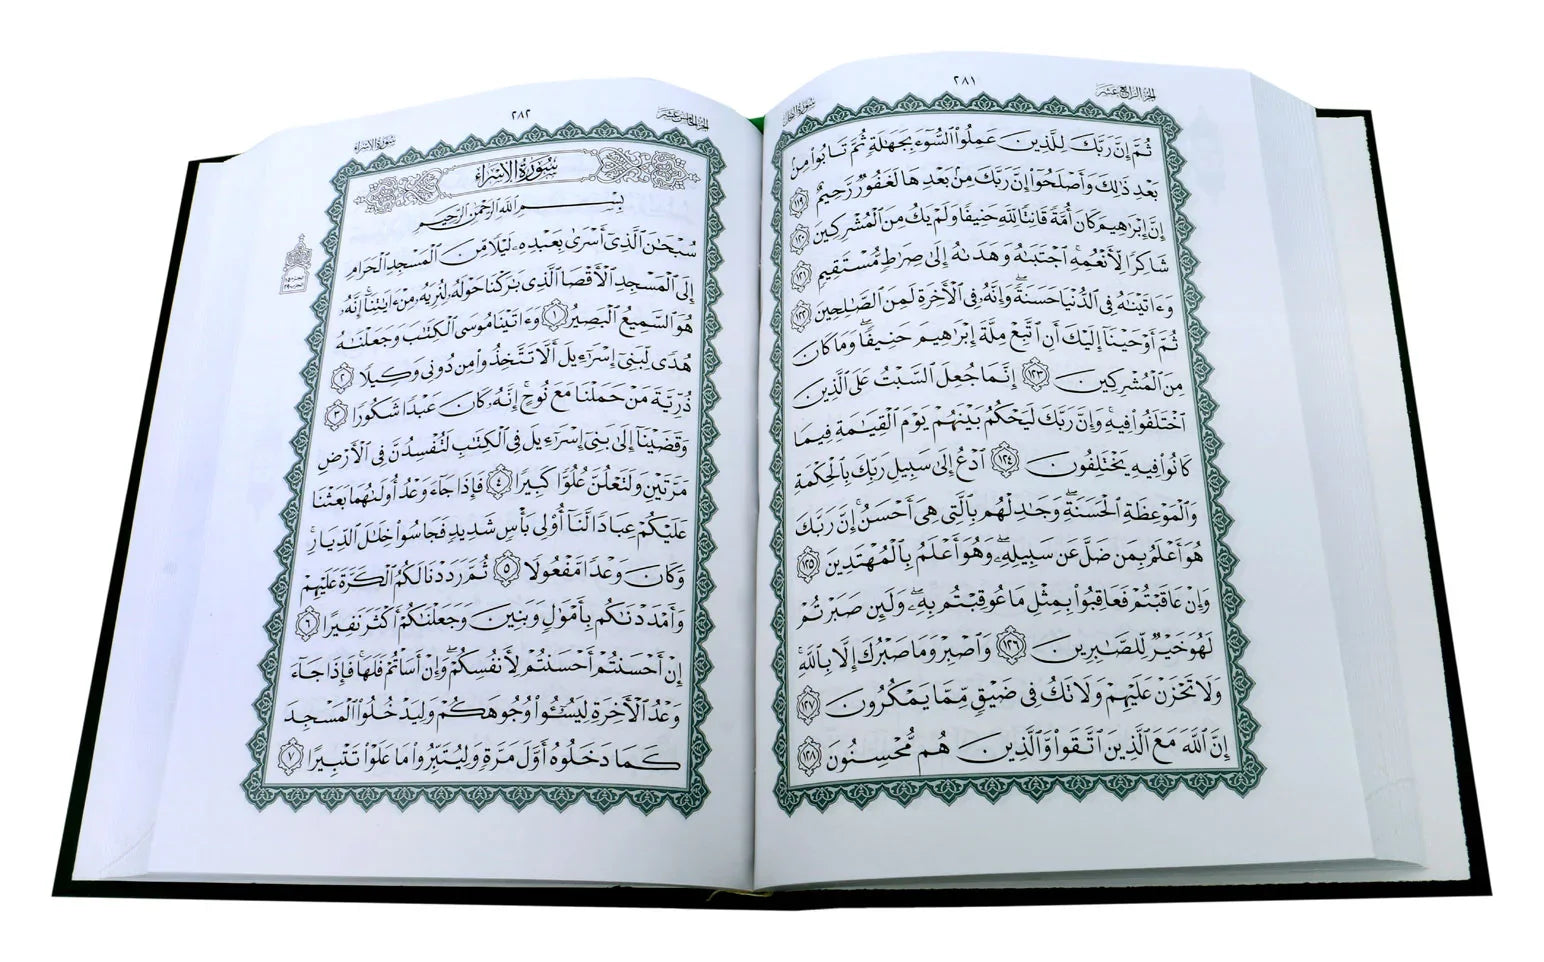 ٢٨١
الجزء الرابع عشر
سورة النحل
ثُمَّ إِنَّ رَبَّكَ لِلَّذِينَ عَمِلُوا۟ ٱلسُّوٓءَ بِجَهَٰلَةٍ ثُمَّ تَابُوا۟ مِنۢ
بَعْدِ ذَٰلِكَ وَأَصْلَحُوٓا۟ إِنَّ رَبَّكَ مِنۢ بَعْدِهَا لَغَفُورٌ رَّحِيمٌ ١١٩
إِنَّ إِبْرَٰهِيمَ كَانَ أُمَّةً قَانِتًا لِّلَّهِ حَنِيفًا وَلَمْ يَكُ مِنَ ٱلْمُشْرِكِينَ ١٢٠
شَاكِرًا لِّأَنْعُمِهِ ۚ ٱجْتَبَىٰهُ وَهَدَىٰهُ إِلَىٰ صِرَٰطٍ مُّسْتَقِيمٍ ١٢١
وَءَاتَيْنَٰهُ فِى ٱلدُّنْيَا حَسَنَةً ۖ وَإِنَّهُۥ فِى ٱلْءَاخِرَةِ لَمِنَ ٱلصَّٰلِحِينَ ١٢٢
ثُمَّ أَوْحَيْنَآ إِلَيْكَ أَنِ ٱتَّبِعْ مِلَّةَ إِبْرَٰهِيمَ حَنِيفًا ۖ وَمَا كَانَ
مِنَ ٱلْمُشْرِكِينَ ١٢٣ إِنَّمَا جُعِلَ ٱلسَّبْتُ عَلَى ٱلَّذِينَ
ٱخْتَلَفُوا۟ فِيهِ ۚ وَإِنَّ رَبَّكَ لَيَحْكُمُ بَيْنَهُمْ يَوْمَ ٱلْقِيَٰمَةِ فِيمَا
كَانُوا۟ فِيهِ يَخْتَلِفُونَ ١٢٤ ٱدْعُ إِلَىٰ سَبِيلِ رَبِّكَ بِٱلْحِكْمَةِ
وَٱلْمَوْعِظَةِ ٱلْحَسَنَةِ ۖ وَجَٰدِلْهُم بِٱلَّتِى هِىَ أَحْسَنُ ۚ إِنَّ رَبَّكَ
هُوَ أَعْلَمُ بِمَن ضَلَّ عَن سَبِيلِهِۦ ۖ وَهُوَ أَعْلَمُ بِٱلْمُهْتَدِينَ ١٢٥
وَإِنْ عَاقَبْتُمْ فَعَاقِبُوا۟ بِمِثْلِ مَا عُوقِبْتُم بِهِۦ ۖ وَلَئِن صَبَرْتُمْ
لَهُوَ خَيْرٌ لِّلصَّٰبِرِينَ ١٢٦ وَٱصْبِرْ وَمَا صَبْرُكَ إِلَّا بِٱللَّهِ ۚ
وَلَا تَحْزَنْ عَلَيْهِمْ وَلَا تَكُ فِى ضَيْقٍ مِّمَّا يَمْكُرُونَ ١٢٧
إِنَّ ٱللَّهَ مَعَ ٱلَّذِينَ ٱتَّقَوا۟ وَّٱلَّذِينَ هُم مُّحْسِنُونَ ١٢٨
٢٨٢
الجزء الخامس عشر
سورة الإسراء
سُورَةُ الإِسْرَاءِ
بِسْمِ ٱللَّهِ ٱلرَّحْمَٰنِ ٱلرَّحِيمِ
سُبْحَٰنَ ٱلَّذِىٓ أَسْرَىٰ بِعَبْدِهِۦ لَيْلًا مِّنَ ٱلْمَسْجِدِ ٱلْحَرَامِ
إِلَى ٱلْمَسْجِدِ ٱلْأَقْصَا ٱلَّذِى بَٰرَكْنَا حَوْلَهُۥ لِنُرِيَهُۥ مِنْ ءَايَٰتِنَآ ۚ إِنَّهُۥ
هُوَ ٱلسَّمِيعُ ٱلْبَصِيرُ ١ وَءَاتَيْنَا مُوسَى ٱلْكِتَٰبَ وَجَعَلْنَٰهُ
هُدًى لِّبَنِىٓ إِسْرَٰٓءِيلَ أَلَّا تَتَّخِذُوا۟ مِن دُونِى وَكِيلًا ٢
ذُرِّيَّةَ مَنْ حَمَلْنَا مَعَ نُوحٍ ۚ إِنَّهُۥ كَانَ عَبْدًا شَكُورًا ٣
وَقَضَيْنَآ إِلَىٰ بَنِىٓ إِسْرَٰٓءِيلَ فِى ٱلْكِتَٰبِ لَتُفْسِدُنَّ فِى ٱلْأَرْضِ
مَرَّتَيْنِ وَلَتَعْلُنَّ عُلُوًّا كَبِيرًا ٤ فَإِذَا جَآءَ وَعْدُ أُولَىٰهُمَا بَعَثْنَا
عَلَيْكُمْ عِبَادًا لَّنَآ أُو۟لِى بَأْسٍ شَدِيدٍ فَجَاسُوا۟ خِلَٰلَ ٱلدِّيَارِ ۚ
وَكَانَ وَعْدًا مَّفْعُولًا ٥ ثُمَّ رَدَدْنَا لَكُمُ ٱلْكَرَّةَ عَلَيْهِمْ
وَأَمْدَدْنَٰكُم بِأَمْوَٰلٍ وَبَنِينَ وَجَعَلْنَٰكُمْ أَكْثَرَ نَفِيرًا ٦
إِنْ أَحْسَنتُمْ أَحْسَنتُمْ لِأَنفُسِكُمْ ۖ وَإِنْ أَسَأْتُمْ فَلَهَا ۚ فَإِذَا جَآءَ
وَعْدُ ٱلْءَاخِرَةِ لِيَسُۥٓـُٔوا۟ وُجُوهَكُمْ وَلِيَدْخُلُوا۟ ٱلْمَسْجِدَ
كَمَا دَخَلُوهُ أَوَّلَ مَرَّةٍ وَلِيُتَبِّرُوا۟ مَا عَلَوْا۟ تَتْبِيرًا ٧